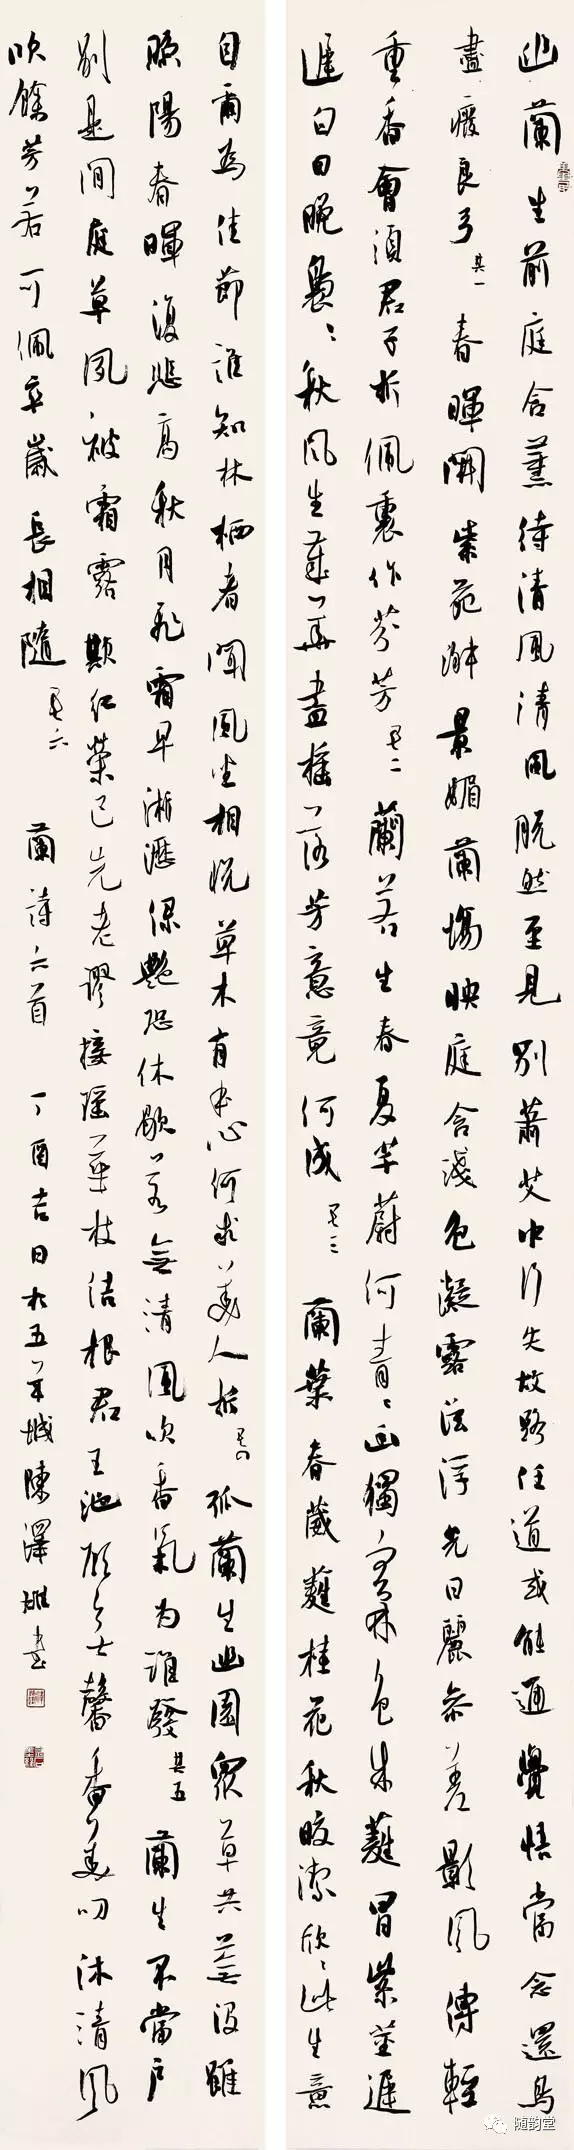 幽蘭生前庭含薰待清風清風脫然至見別蕭艾中行失故路任道或能通覺悟當念還鳥
盡廢良弓 其一 春暉開紫苑淑景媚蘭場映庭含淺色凝露泫浮光日麗參差影風傳輕
重香會須君子折佩裏作芬芳 其二 蘭若生春夏芊蔚何青〻幽獨空林色朱蕤冒紫莖遲
遲白日晚裊〻秋風生歲華盡搖落芳意竟何成 其三 蘭葉春葳蕤桂花秋皎潔欣〻此生意
自爾為佳節誰知林栖者聞風坐相悅草木有本心何求美人折 其四 孤蘭生幽園眾草共蕪沒雖
照陽春暉復悲高秋月飛霜早淅瀝綠艷恐休歇若無清風吹香氣為誰發 其五 蘭生不當戶
別是閒庭草夙被霜露欺紅榮已先老謬接瑤華枝結根君王池顧無馨香美叨沐清風
吹餘芳若可佩卒歲長相隨 其六 蘭詩六首 丁酉吉日於五羊城陳澤雄書
随韵堂